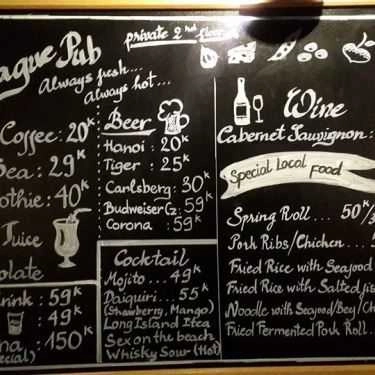 ague Pub
Always fresh...
Always hot...
private 2nd floor
Coffee: 20K
ea: 29K
othie: 40K
Juice
olate
rink : 59K
: 49K
na, : 150K
ecial)
Beer
Hanoi : 20K
Tiger : 25K
Carlsberg: 30K
Budweiser : 59K
Corona : 59K
Cocktail
Mojito... 49K
Daiquiri... 55K
(Strawberry, Mango)
Long Island Itea
Sex on the beach
Whisky Sour (Hot)
Wine
Cabernet Sauvignon:
Special Local Food
Spring Roll ... 50K/
Pork Ribs/Chicken ... 5
Fried Rice with Seafood
Fried Rice with Salted fis
Noodle with Seafood/Beef/Ch
Fried Fermented Pork Roll..